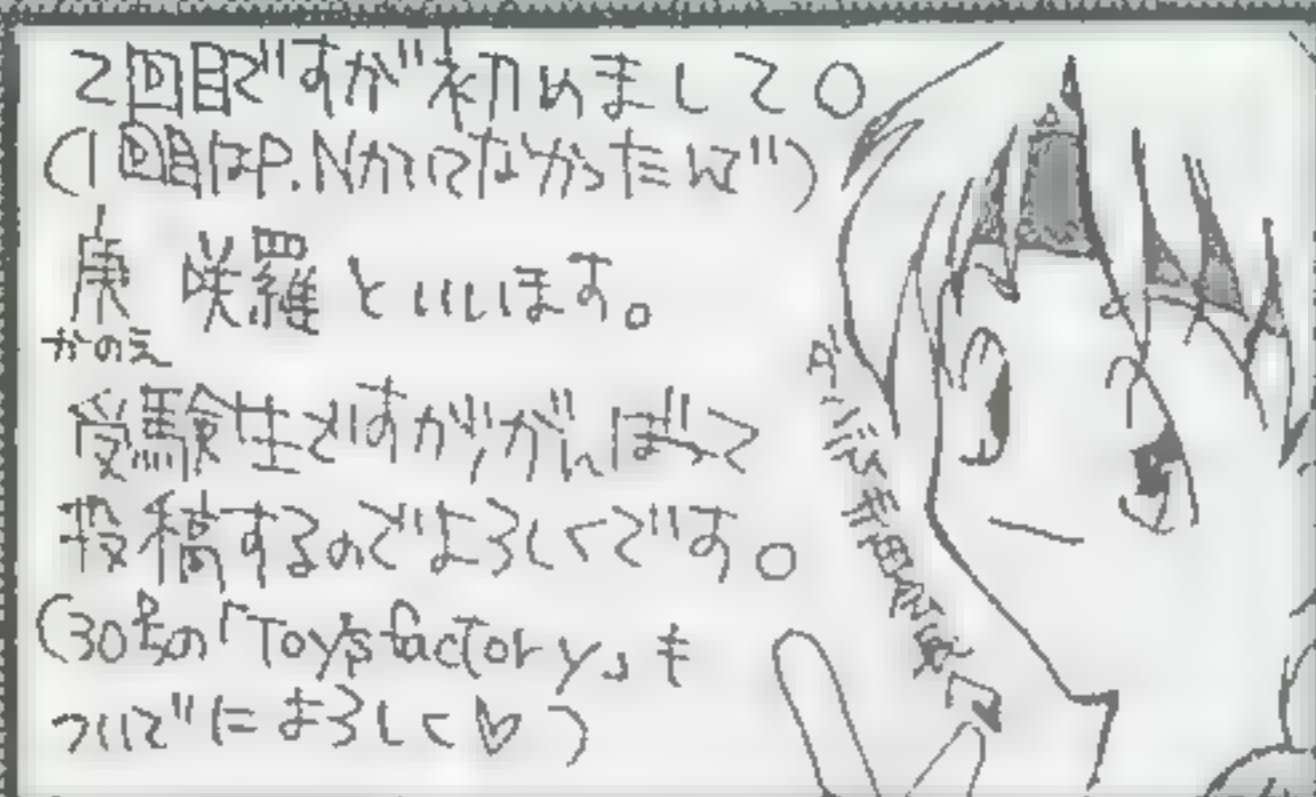 2回目ですが初めまして。
(1回目はP.Nかいてなかったんで)
庚 咲羅といいます。
かのえ
受験生ですが、がんばって
投稿するのでよろしくです。
(30Pの「Toy's factory」も
ついでによろしく♡)